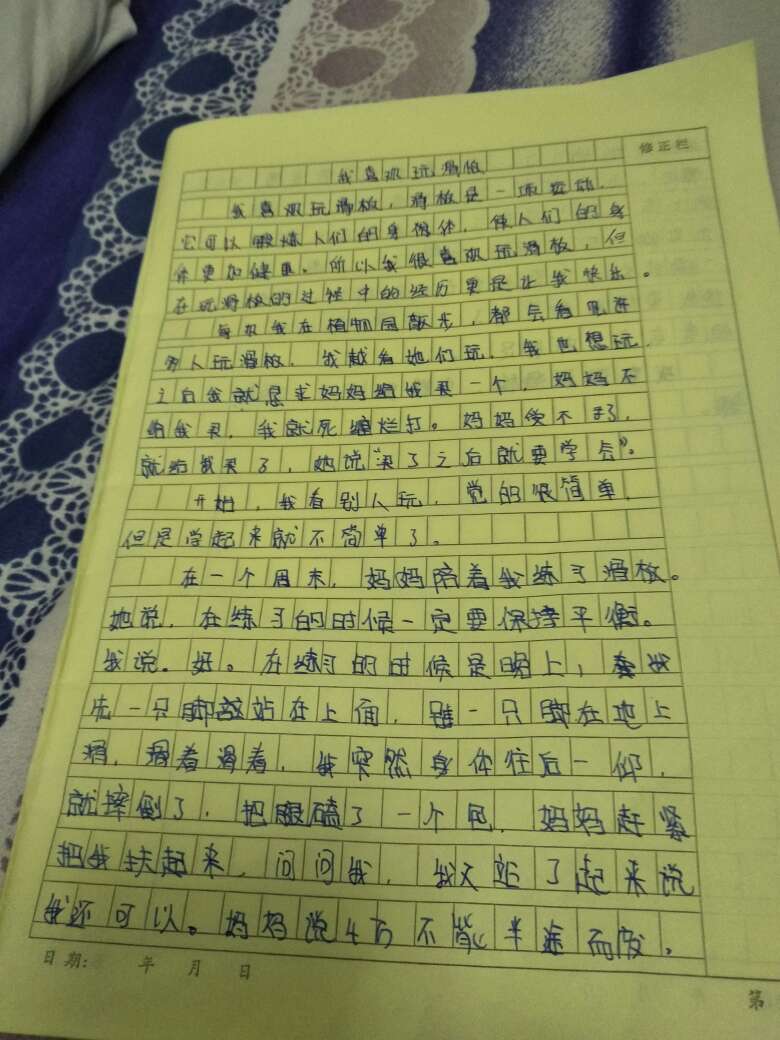 修正栏
我喜欢玩滑板
我喜欢玩滑板，滑板是一项运动，
它可以锻炼人们的身体，使人们的身
体更加健康。所以我很喜欢玩滑板，但
在玩滑板的过程中的经历更是让我快乐。
每次我在植物园散步，都会看见
别人玩滑板，我越看她们玩，我也想玩，
之后我就恳求妈妈给我买一个，妈妈不
给我买，我就死缠烂打。妈妈受不了，
就给我买了，她说“买了之后就要学会”。
开始，我看别人玩，觉的很简单，
但是学起来就不简单了。
在一个周末，妈妈陪着我练习滑板。
她说，在练习的时候一定要保持平衡。
我说。好。在练习的时候是晚上，我
先一只脚站在上面，另一只脚在地上
滑，滑着滑着，我突然身体往后一仰，
就摔倒了，把腿磕了一个包，妈妈赶紧
把我扶起来，问问我，我又站了起来说
我还可以。妈妈说千万不能半途而废。
日期: 年 月 日
第